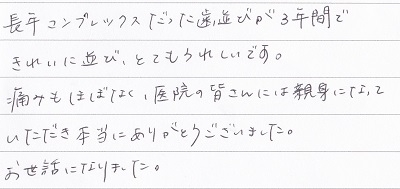 長年コンプレックスだった歯並びが3年間で
きれいに並び、とてもうれしいです。
痛みもほぼなく、医院の皆さんには親身になって
いただき本当にありがとうございました。
お世話になりました。